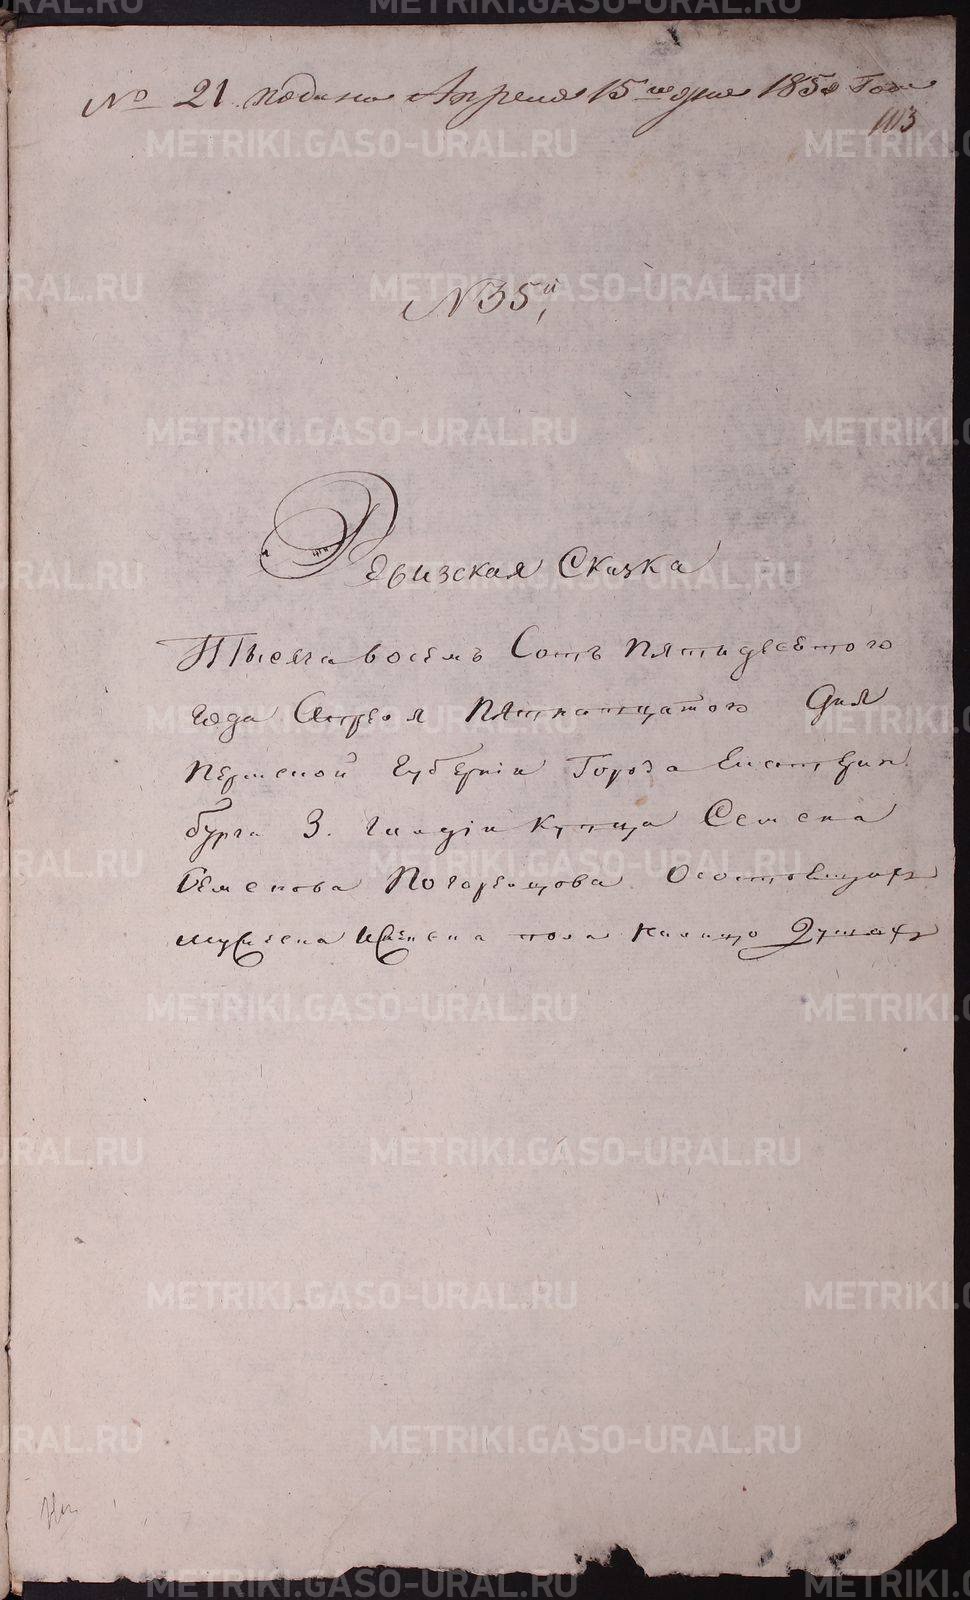 № 21 подана Апреля 15го дня 1850 Года
103
№ 35й
Ревизская Сказка
Тысяча восемь Сотъ пятидесятого
года Апреля пятнатцатого Дня
пермской губернiи Города Екатерин
бурга 3. гильдiи купца Семена
Семенова Погорельцова О состоящихъ
мужеска и женска пола на лицо Душахъ
METRIKI.GASO-URAL.RU